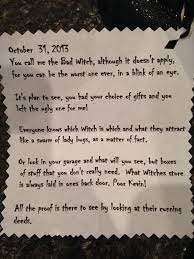 October 31, 2013
You call me the Bad Witch, although it doesn't apply,
for you can be the worst one ever, in a blink of an eye.
It's plan to see, you had your choice of gifts and you
left the ugly one for me!
Everyone knows which Witch is which and what they attract
like a swarm of lady bugs, as a matter of fact.
Or look in your garage and what will you see, but boxes
of stuff that you don't really need. What Witches store
is always laid in ones back door. Poor Kevin!
All the proof is there to see by looking at their evening
deeds.